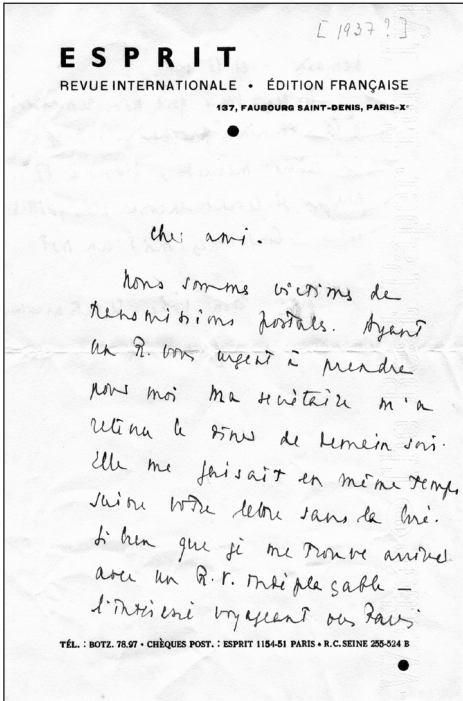 [1937?]
ESPRIT
REVUE INTERNATIONALE • ÉDITION FRANÇAISE
137, FAUBOURG SAINT-DENIS, PARIS-Xᵉ
Cher ami.
Nous sommes victimes de
transmissions postales. Ayant
un R. vous urgent à prendre
pour moi ma secrétaire m'a
retenu le dîner de demain soir.
Elle me faisait en même temps
suivre votre lettre sans la lire.
Si bien que je me trouve arriver
avec un R.V. indéplaçable —
l'intéressé voyageant vers Paris
TÉL. : BOTZ. 78.97 • CHÈQUES POST. : ESPRIT 1154-51 PARIS • R.C. SEINE 255-524 B